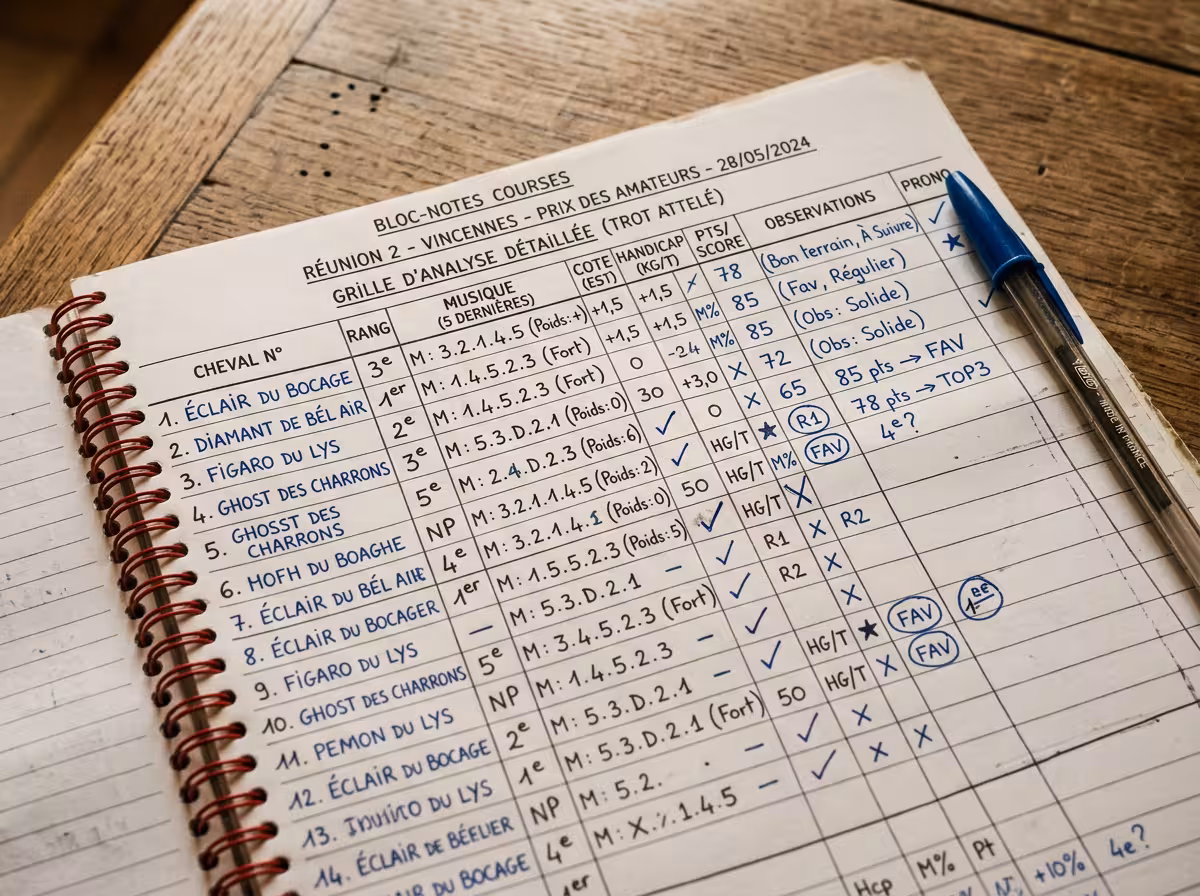 BLOC-NOTES COURSES
RÉUNION 2 - VINCENNES - PRIX DES AMATEURS - 28/05/2024
GRILLE D'ANALYSE DÉTAILLÉE (TROT ATTELÉ)
CHEVAL N° RANG MUSIQUE (5 DERNIÈRES) COTE (EST) HANDICAP (KG/T) PTS/SCORE OBSERVATIONS PRONO
1. ÉCLAIR DU BOCAGE 3e M: 3.2.1.4.5 (Poids:+) +1,5 +1,5 X 78 (Bon terrain, À Suivre) ✓
2. DIAMANT DE BÉL AIR 1er M: 1.4.5.2.3 (Fort) +1,5 +1,5 M% 85 (Fav, Régulier) ★
3. FIGARO DU LYS 2e M: 1.4.5.2.3 (Fort) 0 -24 M% 85 (Obs: Solide)
4. GHOST DES CHARRONS 3e M: 5.3.D.2.1 (Poids:0) 30 +3,0 X 72 (Obs: Solide) ✓
5. GHOSST DES CHARRONS 5e M: 2.4.D.2.3 (Poids:6) ✓ 0 X 65 85 pts → FAV
6. HOFH DU BOAGHE NP M: 3.2.1.1.4.5 (Poids:2) ✓ HG/T ★ R1 78 pts → TOP3
7. ÉCLAIR DU BÉL AIE 4e M: 3.2.1.4.1 (Poids:0) 50 HG/T M% FAV 4e?
8. ÉCLAIR DU BOCAGER 1er M: 1.5.5.2.3 (Poids:5) ✓ HG/T X
9. FIGARO DU LYS – M: 5.3.D.2.1 – ✓ R1 X R2
10. GHOST DES CHARRONS 5e M: 3.4.5.2.3 (Fort) ✓ R2 X
11. PEMON DU LYS NP M: 1.4.5.2.3 – ✓ X
12. ÉCLAIR DU BOCAGE 2e M: 5.3.D.2.1 – ✓ HG/T ★ FAV
13. DU LYS 1e M: 5.3.D.2.1 (Fort) 50 HG/T X FAV
14. ÉCLAIR DE BÉELIER NP M: 5.2. . – ✓ X
DU BOCAGE 4e M: X.%.1.4.5 – ✓ X X
1er
Hcp M% Pt
+10% 4e?